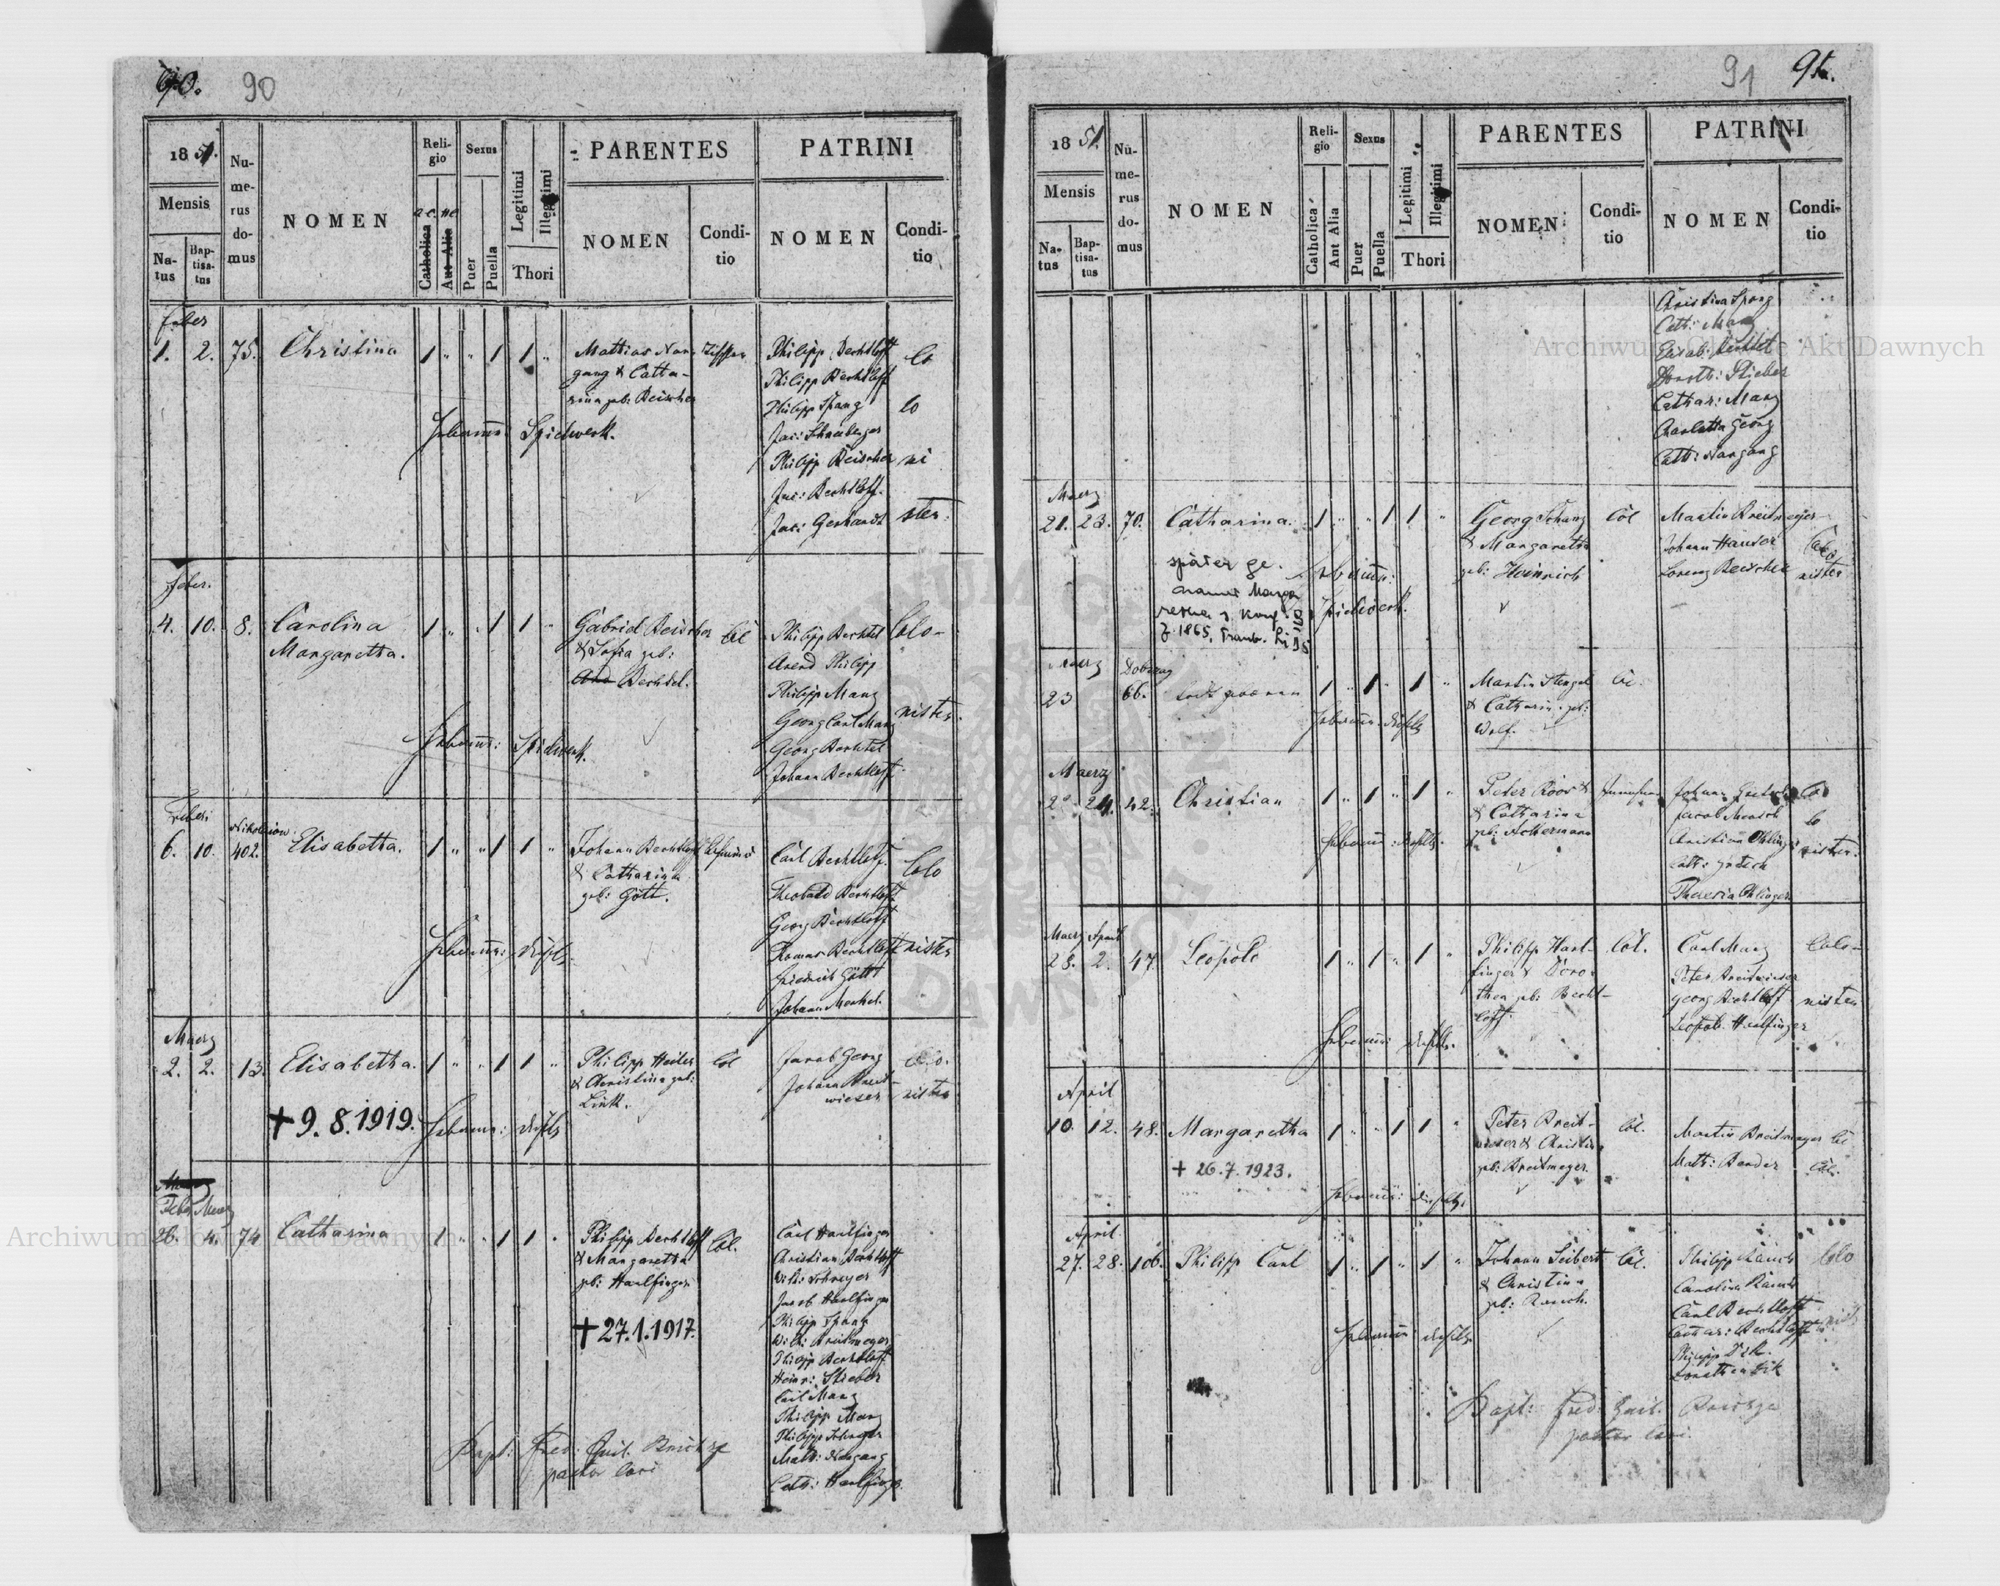 90. 90
1851.
Mensis
Na-
tus
Bap-
tisa-
tus
Nu-
me-
rus
do-
mus
NOMEN
Reli-
gio
Catholica
Aut Alia
Sexus
Puer
Puella
Legitimi
Illegitimi
Thori
PARENTES
NOMEN
Condi-
tio
PATRINI
NOMEN
Condi-
tio
Feber
1. 2. 75. Christina 1 " " 1 1 "
Mathias Nan-
gang & Catha-
rina geb: Beischer
Philipp Bechtloff
Philipp Bechtloff
Philipp Spang
Jac: Schneeberger
Philipp Beischer
Jac: Bechtloff.
Jac: Gerhardt
Co
lo
ni
sten.
Hebamm: Spielwerk.
Feber.
4. 10. 8. Carolina
Margaretha.
1 " " 1 1 "
Gabriel Beischer
& Sofia geb:
Bechtel.
Col
Philipp Bechtel
Arend Philipp
Philipp Mang
Georg Carl Mang
Georg Bechtel
Johann Bechtloff.
Colo-
nisten.
Hebamm: Spielwerk.
Feber:
6. 10. 402. Elisabetha. 1 " " 1 1 "
Johann Bechtloff
& Catharina
geb: Gött.
Carl Bechtloff.
Theobald Bechtloff
Georg Bechtloff
Thomas Bechtloff
Friedrich Gött
Johann Merkel.
Colo
nisten
Hebamm: dieselbe
Maerz
2. 2. 13. Elisabetha. 1 " " 1 1 "
Philipp Hailer
& Christina geb:
Link.
Col
Jacob Georg
Johann Breit-
wieser
Colo.
nisten
+ 9. 8. 1919. Hebamm: dieselbe
Feber Maerz
26. 4. 74 Catharina 1 " " 1 1 "
Philipp Bechtloff
& Margaretha
geb: Harlfinger
Col.
+ 27. 1. 1917.
Carl Harlfinger
Christian Bechtloff
Wilh: Schreyer
Jacob Harlfinger
Philipp Spang
Wilh: Breitmeyer
Philipp Bechtloff.
Heinr: Stieber
Carl Mang
Philipp Mang
Math: Nangang
Cath: Harlfinger.
Bapt: Fred: Guil.
pastor loci
91 91.
1851.
Mensis
Na-
tus
Bap-
tisa-
tus
Nu-
me-
rus
do-
mus
NOMEN
Reli-
gio
Catholica
Aut Alia
Sexus
Puer
Puella
Legitimi
Illegitimi
Thori
PARENTES
NOMEN
Condi-
tio
PATRINI
NOMEN
Condi-
tio
Christina Spang
Cath: Mang
Elisab: Bechtel
Doroth: Stieber
Cathar: Mang
Charlotta Georg
Cath: Nangang
Maerz
21. 23. 70. Catharina. 1 " " 1 1 "
Georg Schanz
& Margaretha
geb: Heinrich
Col
Martin Breitmeyer
Johann Hauser
Lorenz Beischer
Colo
nisten
später ge-
nannt Marga
retha s. Konf.
J. 1865, Traub.
Hebamm:
Spielwerk.
Maerz
23 66. todt geboren 1 " 1 " 1 "
Martin Stengel
& Catharin. geb:
Wolf.
Col.
Hebamm: dieselbe
Maerz
24. 42. Christian 1 " 1 " 1 "
Peter Roos &
& Catharina
geb: Ackermann
Jacob Mensch
Christina Ohlinger
Theresia Ohlinger
nisten.
Hebamm: dieselbe.
Maerz April
28. 2. 47. Leopold 1 " 1 " 1 "
Philipp Harl-
finger & Doro-
thea geb: Becht-
loff.
Col.
Carl Mang
Peter Breitwieser
Georg Bechtloff
Leopold Harlfinger
Colo-
nisten
Hebamm: dieselbe.
April
10. 12. 48. Margaretha 1 " " 1 1 "
Peter Breit-
wieser & Christin
geb: Breitmeyer
Col.
Martin Breitmeyer
Math: Bender
Col
Col.
+ 26. 7. 1923.
Hebamm: dieselbe.
April
27. 28. 106. Philipp Carl 1 " 1 " 1 "
Johann Seibert
& Christina
geb: Rauch.
Col.
Philipp Rauch
Carolina Rauch
Carl Bechtloff
Cathar: Bechtloff
Philipp Dik
Dorothea Dik
Colo
Hebamm: dieselbe
Bapt: Fred: Guil.
pastor loci.
Archiwum Główne Akt Dawnych
Archiwum Główne Akt Dawnych